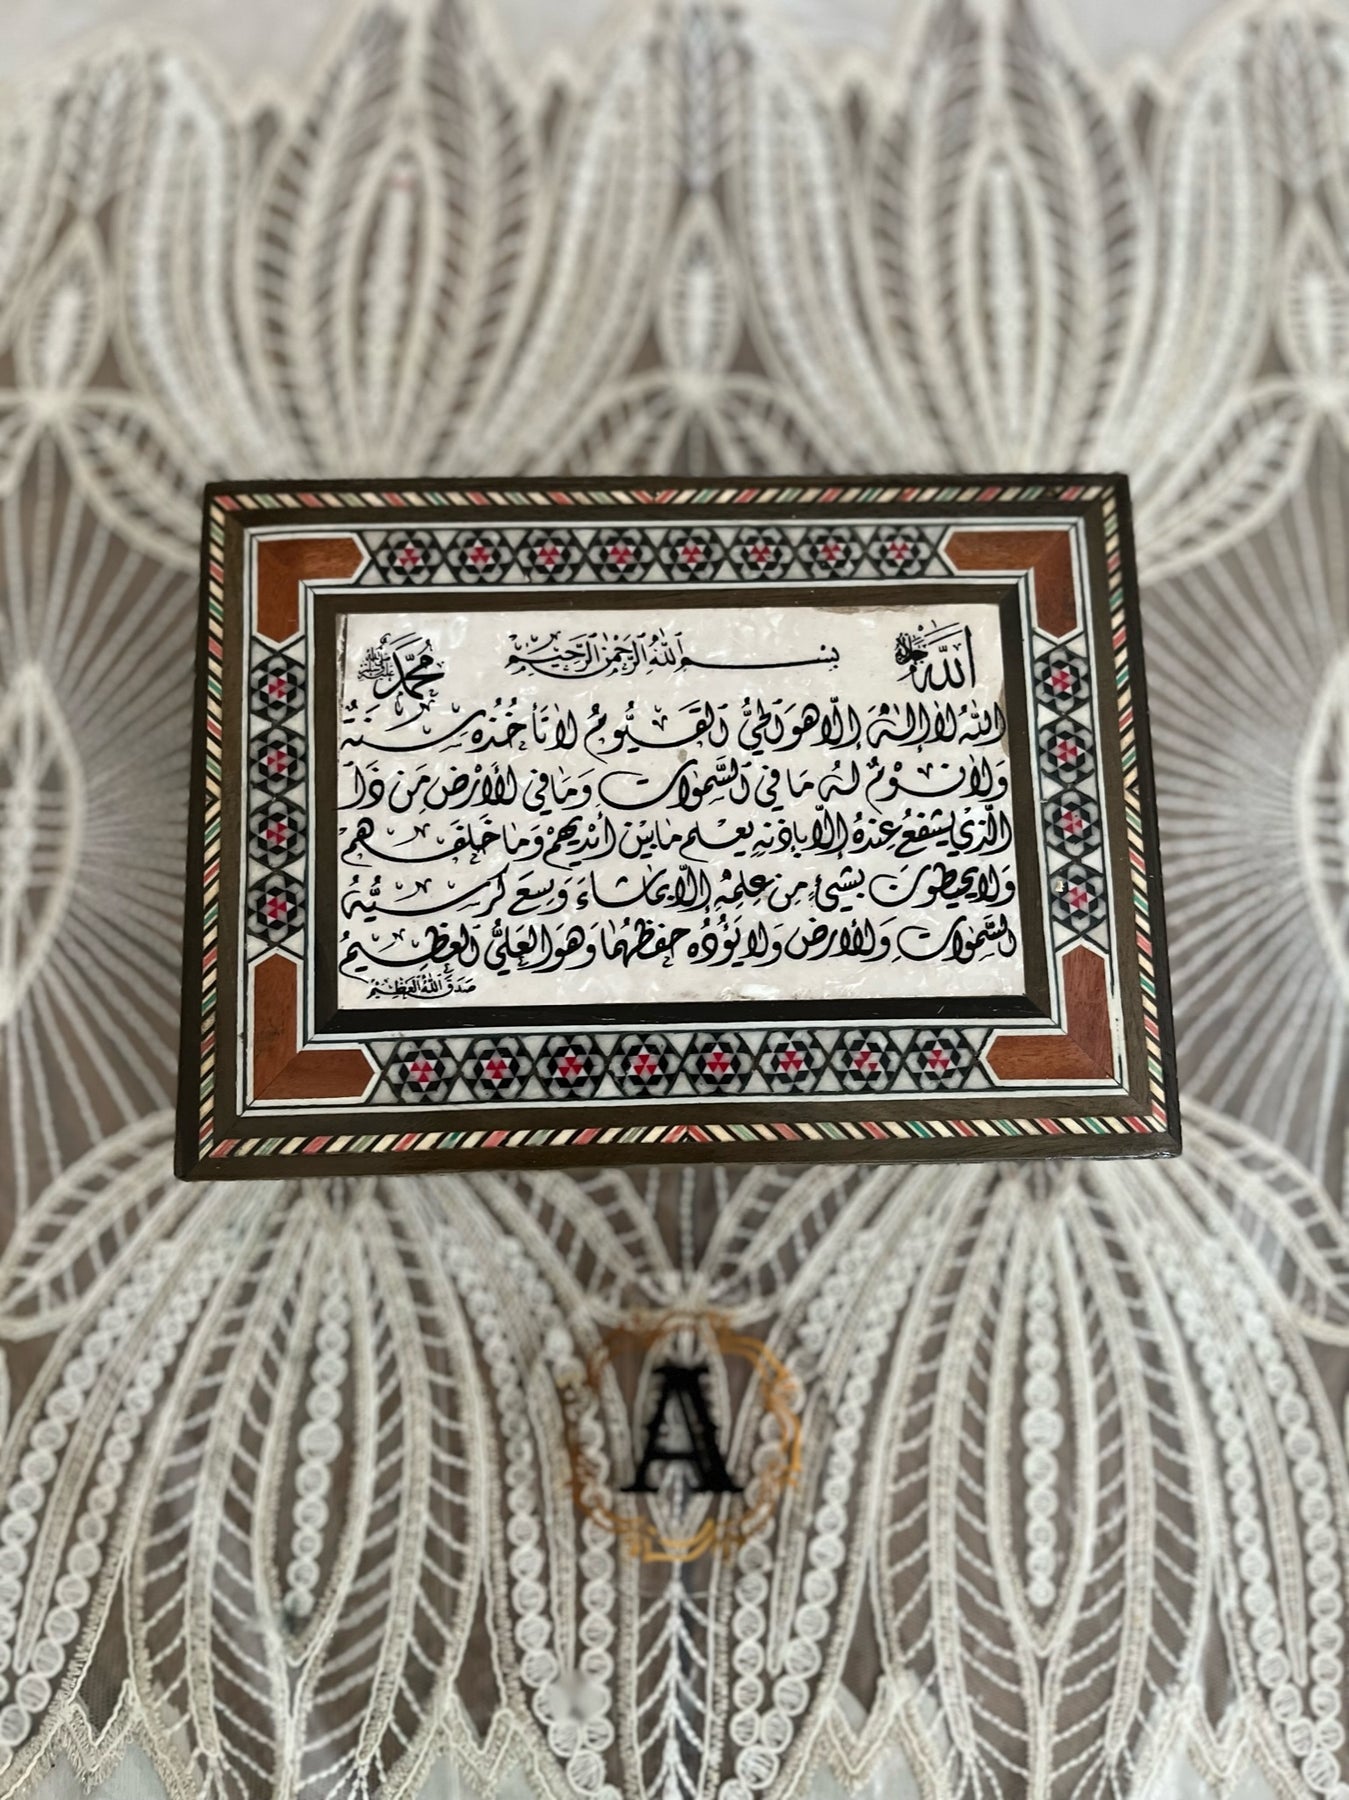 الله جل جلاله
بسم الله الرحمن الرحيم
محمد صلى الله عليه وسلم
الله لا إله إلا هو الحي القيوم لا تأخذه سنة
ولا نوم له ما في السموات وما في الأرض من ذا
الذي يشفع عنده إلا بإذنه يعلم ما بين أيديهم وما خلفهم
ولا يحيطون بشيء من علمه إلا بما شاء وسع كرسيه
السموات والأرض ولا يؤده حفظهما وهو العلي العظيم
صدق الله العظيم
A